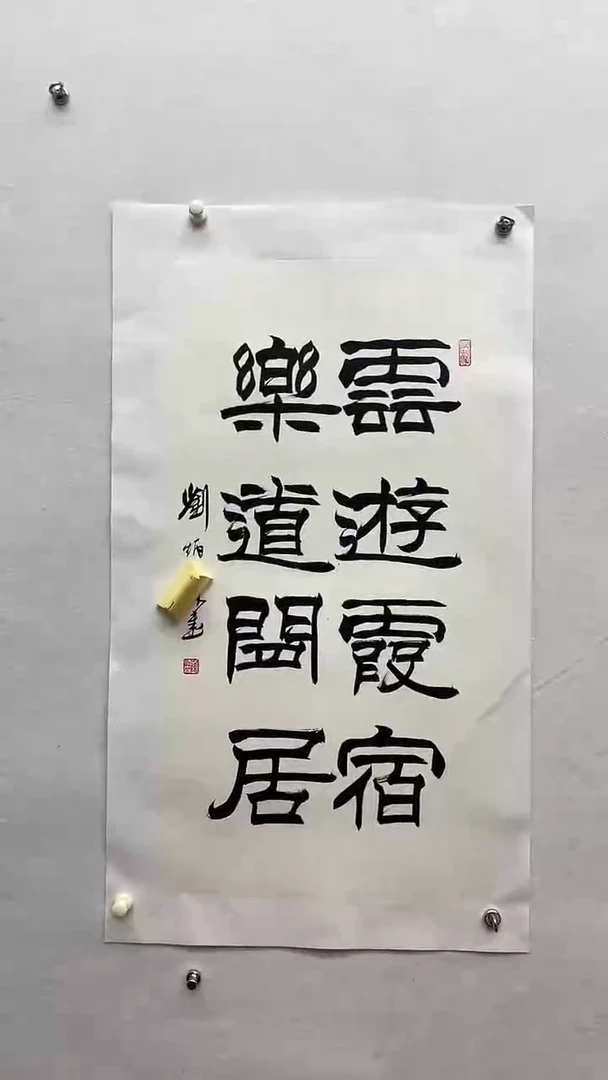 雲遊霞宿
樂道閒居
劉炳